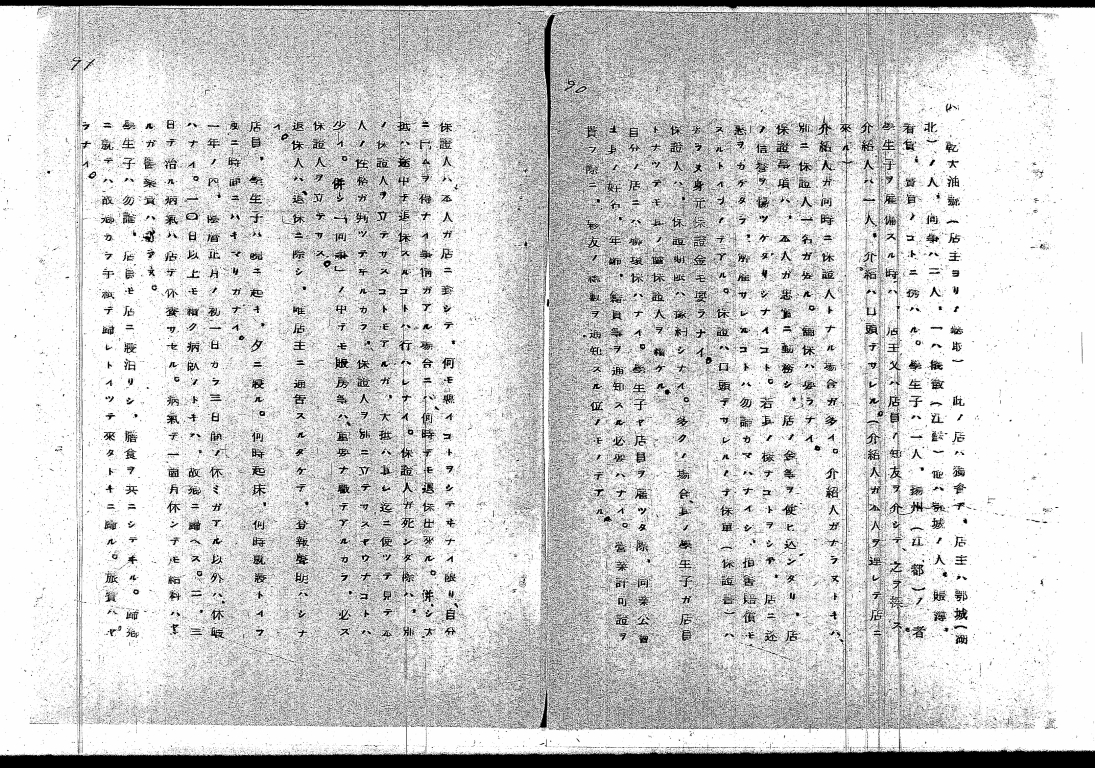 90
(ハ) 乾大油號(店主ヨリノ聽取) 此ノ店ハ獨資デ、店主ハ鄂城(湖
北)ノ人、同事ハ二人、一ハ(江蘇)他ハ鄂城ノ人、賬簿、
看貨、賣買ノコトニ務ハル。學生子ハ一人、揚州(江都)ノ者
學生子ヲ雇傭スル時ハ、店主又ハ店員ノ知友ヲ介シテ、之ヲ探ス。
介紹人ハ一人。介紹ハ口頭デサレル。(介紹人ガ本人ヲ連レテ店ニ
來ル)
介紹人ガ同時ニ保證人トナル場合ガ多イ。介紹人ガナラヌトキハ、
別ニ保證人一名ガ要ル。鋪保ハ要ラナイ。
保證事項ハ、本人ガ忠實ニ勤務シ、店ノ金等ヲ使ヒ込ンダリ、店
ノ信譽ヲ傷ツケタリシナイコト。若シノ樣ナコトヲシテ、店ニ迷
惑ヲカケタラ、解雇サレルコトハ勿論カマハナイシ、損害賠償モ
スルトイフノデアル。保證ハ口頭デサレル、保單(保證書)ハ
ヌ。身元保證金モ要ラナイ。
保證人ハ、保證期限ハ約シナイ。多クノ場合ノ學生子ガ店員
トナツテモ其ノ儘保證人ヲ續ケル。
自分ノ店ニハ環保ハナイ。學生子ヤ店員ヲ雇ツタ際、同業公會
ノ姓名、年齡、等ヲ通知スル必要ハナイ。營業許可證ヲ
貰フ際ニ、ノ數ヲ通知スル位ノモノデアル。
91
保證人ハ本人ガ店ニ對シテ、何モ惡イコトヲシテヰナイ限リ、自分
ニ已ムヲ得ナイ事情ガアル場合ニハ何時デモ退保出來ル。併シ大
抵ハ途中デ退保スルコトハ行ハレナイ。保證人ガ死ンダ際ハ、別
ノ保證人ヲ立テサスコトモアルガ、大抵ハ其レ迄ニ使ツテ見テ本
人ノ性格ガ判ツテヰルカラ、保證人ヲ別ニ立テサスヤウナコトハ
少イ。併シ「同事」ノ中デモ賬房等ハ、重要ナ職デアルカラ、必ズ
保證人ヲ立テサス。
退保人ハ、退保ニ際シ、唯店主ニ通告スルダケデ、登報聲明ハシナ
イ。
店員、學生子ハ晩ニ起キ、夕ニ寢ル。何時起床、何時就寢トイフ
風ニ時間ニハキマリガナイ。
一年ノ内、陰曆正月ノ初一日カラ三日間ノ休ミガアル以外ハ休暇
ハナイ。一〇日以上モ續ク病臥ノトキハ、故鄕ニ歸ヘス。二、三
日デ治ル病氣ハ店デ休養サセル。病氣デ一箇月休ンデモ給料ハヤ
ルガ醫藥費ハ出サヌ。
學生子ハ勿論、店員モ店ニ寢泊リシ、膳食ヲ共ニシテヰル。歸鄕
ニ就テハ故鄕カラ手紙デ歸レトイツテ來タトキニ歸ル。旅費ハヤ
ラナイ。